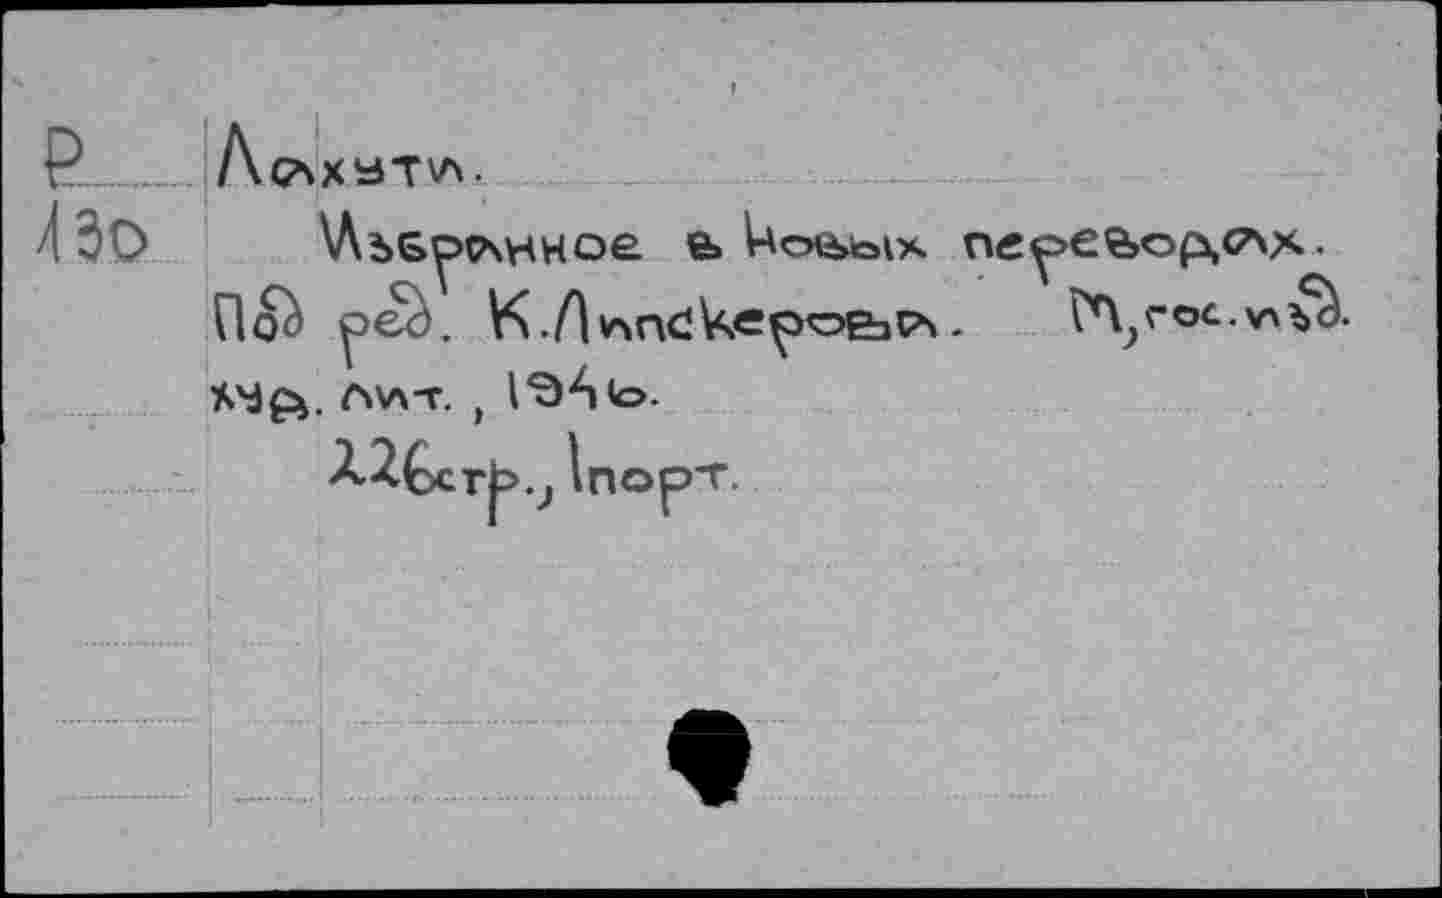 Р Лахути.
130 Избранное в новых переводах.
Под ред. К.Липскерова. М, гос.изд.
худ. лит., 1946.
226стр., 1порт.